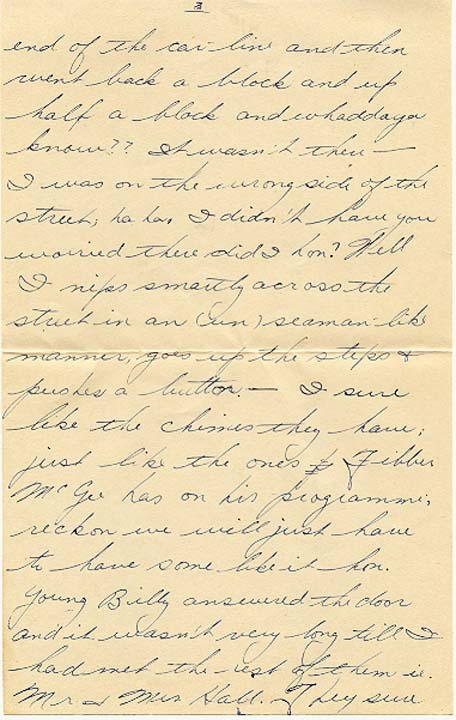 3
end of the car-line and then
went back a block and up
half a block and whaddaya
know?? It wasn't there —
I was on the wrong side of the
street; ha ha I didn't have you
worried there did I hon? Well
I nips smartly across the
street in an (un) seaman-like
manner, goes up the steps &
pushes a button. — I sure
like the chimes they have;
just like the ones Fibber
McGee has on his programme;
reckon we will just have
to have some like it hon.
Young Billy answered the door
and it wasn't very long till I
had met the rest of them ie.
Mr & Mrs Hall. They sure